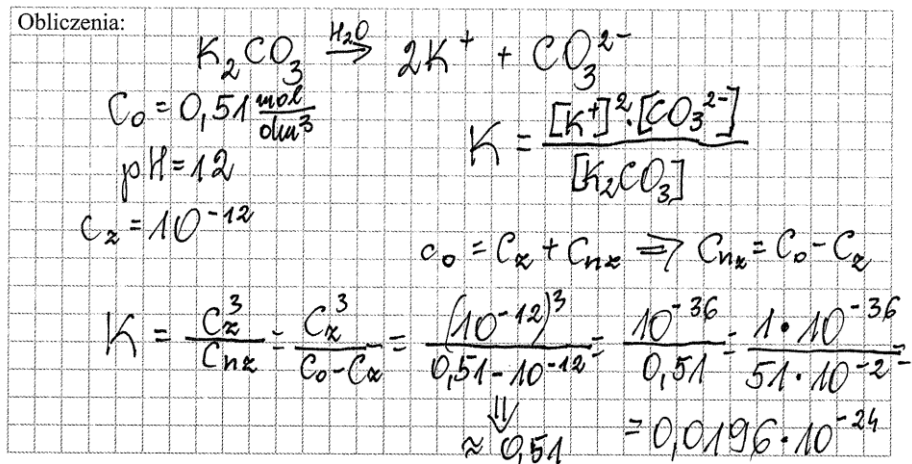 Obliczenia:
K₂CO₃ —H₂O→ 2K⁺ + CO₃²⁻
C₀ = 0,51 mol/dm³
K = [K⁺]²·[CO₃²⁻] / [K₂CO₃]
pH = 12
C_z = 10⁻¹²
c₀ = C_z + C_nz ⇒ C_nz = C₀ - C_z
K = C_z³ / C_nz = C_z³ / (C₀ - C_z) = (10⁻¹²)³ / (0,51 - 10⁻¹²) = 10⁻³⁶ / 0,51 = 1·10⁻³⁶ / 51·10⁻² =
⇓
≈ 0,51 = 0,0196·10⁻²⁴